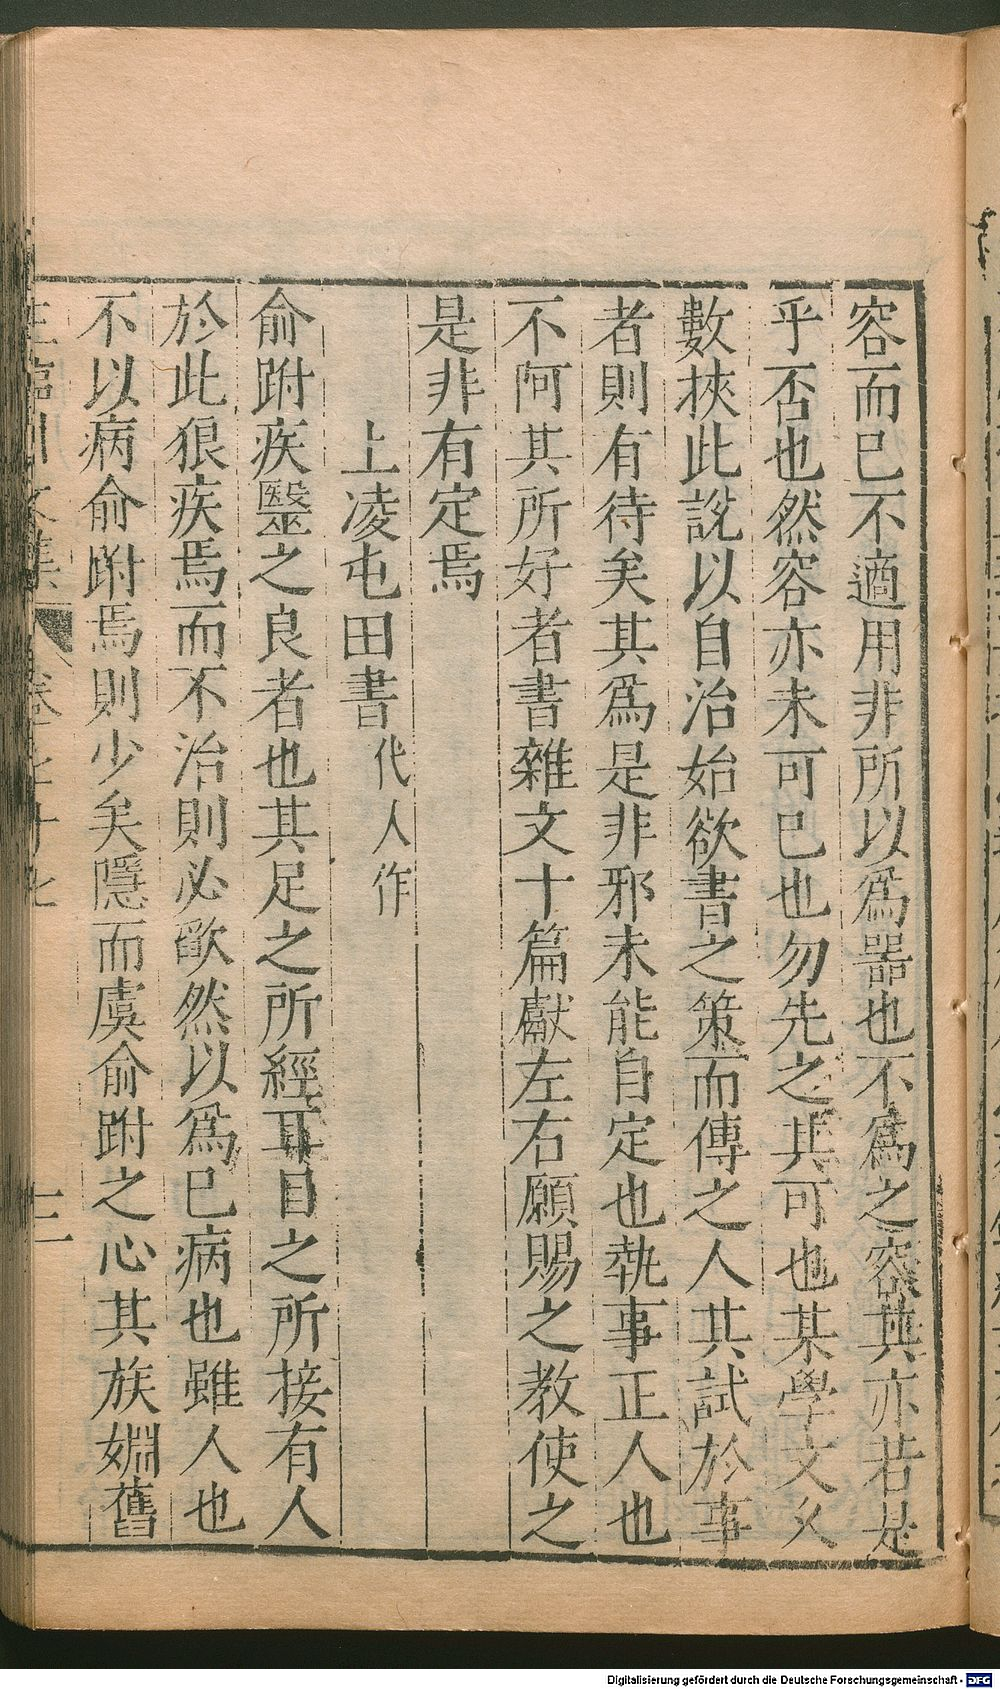 容而已不適用非所以爲器也不爲之容其亦若是
乎否也然容亦未可已也勿先之其可也某學文久
數挾此說以自治始欲書之策而傳之人其試於事
者則有待矣其爲是非邪未能自定也執事正人也
不阿其所好者書雜文十篇獻左右願賜之教使之
是非有定焉
上凌屯田書 代人作
俞跗疾醫之良者也其足之所經耳目之所接有人
於此狠疾焉而不治則必歉然以爲已病也雖人也
不以病俞跗焉則少矣隱而虞俞跗之心其族婣舊
王臨川文集 卷七十七 十二
Digitalisierung gefördert durch die Deutsche Forschungsgemeinschaft - DFG